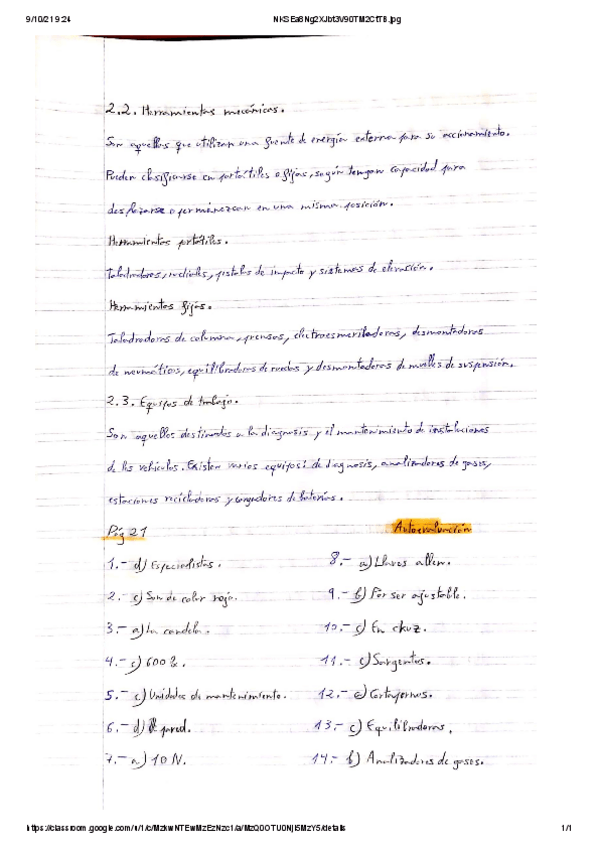 9/10/21 9:24
2.2. Herramientas mecánicas.
Son aquellas que utilizan una fuente de energía externa para su accionamiento.
Pueden clasificarse en portátiles o fijas, según tengan capacidad para
desplazarse o permanezcan en una misma posición.
Herramientas portátiles.
Taladradoras, radiales, pistolas de impacto y sistemas de elevación.
Herramientas fijas.
Taladradoras de columna, prensas, electroesmeriladoras, desmontadoras
de neumáticos, equilibradoras de ruedas y desmontadoras de muelles de suspensión.
2.3. Equipos de trabajo.
Son aquellos destinados a la diagnosis y el mantenimiento de instalaciones
de los vehículos. Existen varios equipos: de diagnosis, analizadores de gases,
estaciones recicladoras y cargadores de baterías.
Pág 21 Autoevaluación
1.- d) Especialistas.
2.- c) Son de color rojo.
3.- a) La candela.
4.- c) 600
5.- c) Unidades de mantenimiento.
6.- d) pared.
7.- a) 10 N.
8.- a) Llaves allen.
9.- b) Por ser ajustable.
10.- c) En cruz.
11.- c) Sargentos.
12.- Cortaframos.
13.- c) Equilibradoras.
14.- b) Analizadores de gases.
1/1